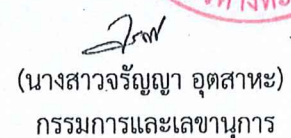 (นางสาวจรัญญา อุตสาหะ)
กรรมการและเลขานุการ